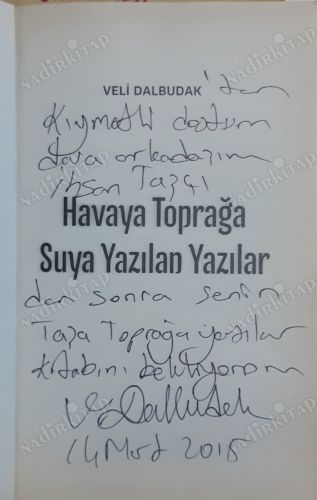 VELİ DALBUDAK'tan
Kıymetli dostum
dava arkadaşım
İhsan Tazçı
Havaya Toprağa
Suya Yazılan Yazılar
dan sonra senin
Taşa Toprağa yazılar
Kitabını bekliyorum
V Dalbudak
14 Mart 2015
NADİRKİTAP